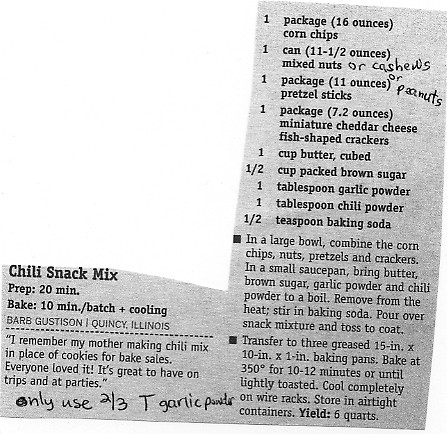 1 package (16 ounces)
corn chips
1 can (11-1/2 ounces)
mixed nuts or cashews
or peanuts
1 package (11 ounces)
pretzel sticks
1 package (7.2 ounces)
miniature cheddar cheese
fish-shaped crackers
1 cup butter, cubed
1/2 cup packed brown sugar
1 tablespoon garlic powder
1 tablespoon chili powder
1/2 teaspoon baking soda
■ In a large bowl, combine the corn
chips, nuts, pretzels and crackers.
In a small saucepan, bring butter,
brown sugar, garlic powder and chili
powder to a boil. Remove from the
heat; stir in baking soda. Pour over
snack mixture and toss to coat.
■ Transfer to three greased 15-in. x
10-in. x 1-in. baking pans. Bake at
350° for 10-12 minutes or until
lightly toasted. Cool completely
on wire racks. Store in airtight
containers. Yield: 6 quarts.
Chili Snack Mix
Prep: 20 min.
Bake: 10 min./batch + cooling
BARB GUSTISON | QUINCY, ILLINOIS
"I remember my mother making chili mix
in place of cookies for bake sales.
Everyone loved it! It's great to have on
trips and at parties."
only use 2/3 T garlic powder